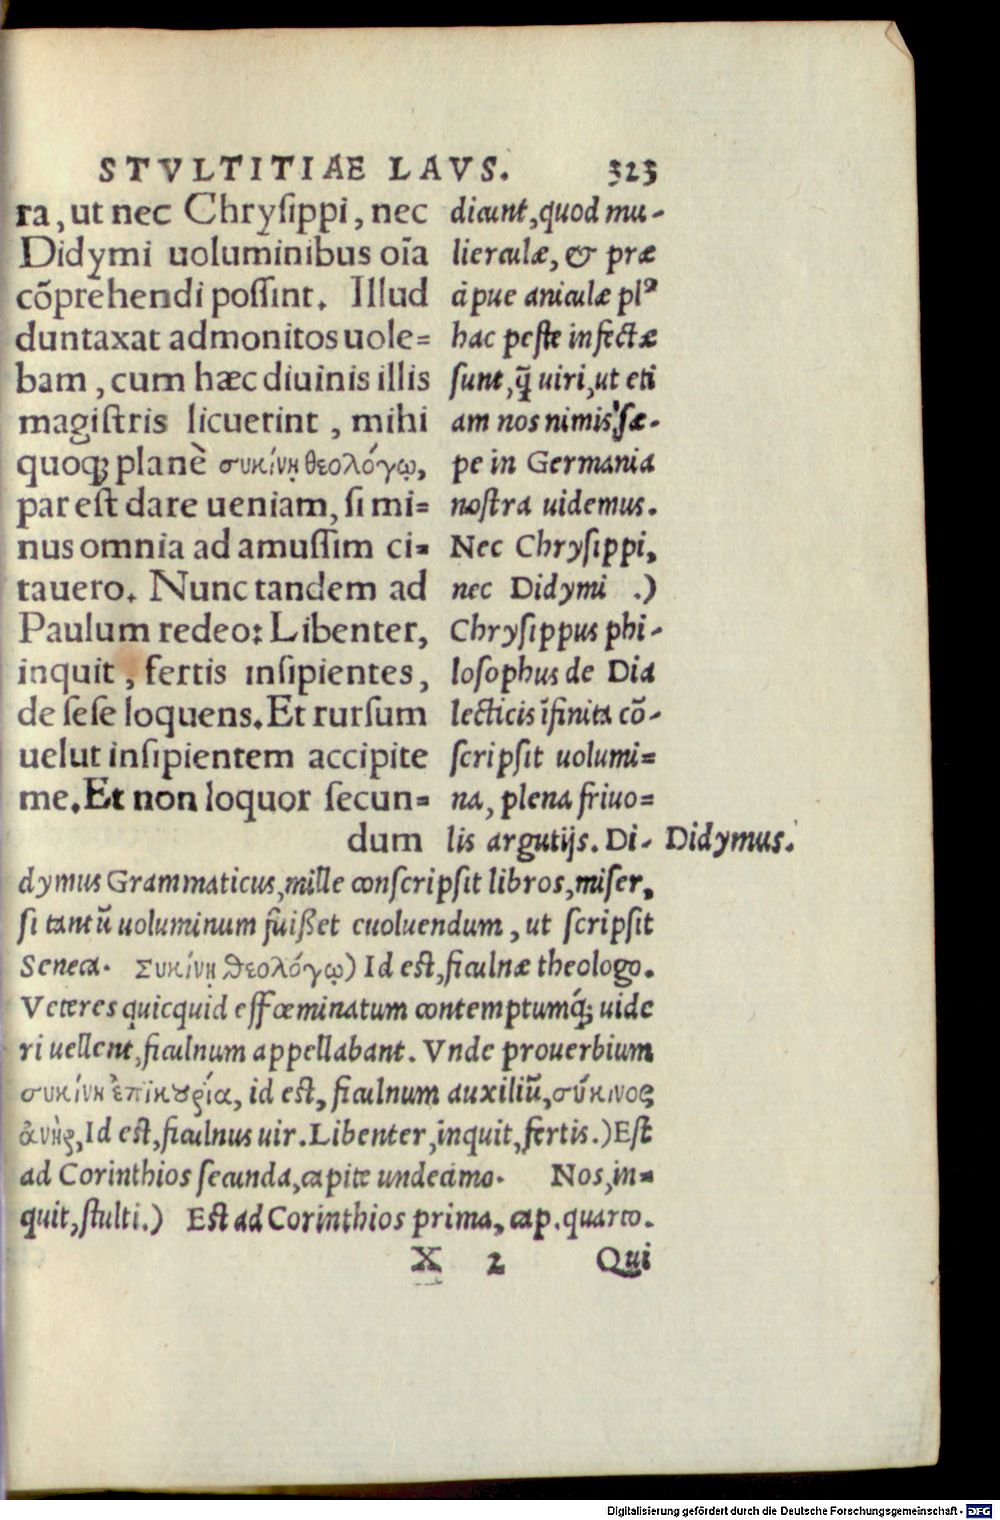 STVLTITIAE LAVS. 323
ra, ut nec Chrysippi, nec
Didymi uoluminibus oĩa
cõprehendi possint. Illud
duntaxat admonitos uole=
bam, cum hæc diuinis illis
magistris licuerint, mihi
quoq; planè συκίνῃ θεολόγῳ,
par est dare ueniam, si mi=
nus omnia ad amussim ci=
tauero. Nunc tandem ad
Paulum redeo: Libenter,
inquit, fertis insipientes,
de sese loquens. Et rursum
uelut insipientem accipite
me. Et non loquor secun=
dum
dicunt, quod mu-
lierculæ, & præ
cipue aniculæ plꝰ
hac peste infectæ
sunt, q̃ uiri, ut eti
am nos nimis sæ-
pe in Germania
nostra uidemus.
Nec Chrysippi,
nec Didymi .)
Chrysippus phi-
losophus de Dia
lecticis ĩfinita cõ-
scripsit uolumi=
na, plena friuo=
lis argutijs. Di-
Didymus.
dymus Grammaticus, mille conscripsit libros, miser,
si tantũ uoluminum fuißet euoluendum, ut scripsit
Seneca. Συκίνῃ θεολόγῳ) Id est, ficulnæ theologo.
Veteres quicquid effœminatum contemptumq́; uide
ri uellent, ficulnum appellabant. Vnde prouerbium
συκίνη ἐπικουρία, id est, ficulnum auxiliũ, σύκινος
ἀνὴρ, Id est, ficulnus uir. Libenter, inquit, fertis.) Est
ad Corinthios secunda, capite undecimo. Nos, in=
quit, stulti.) Est ad Corinthios prima, cap. quarto.
X 2 Qui
Digitalisierung gefördert durch die Deutsche Forschungsgemeinschaft - DFG